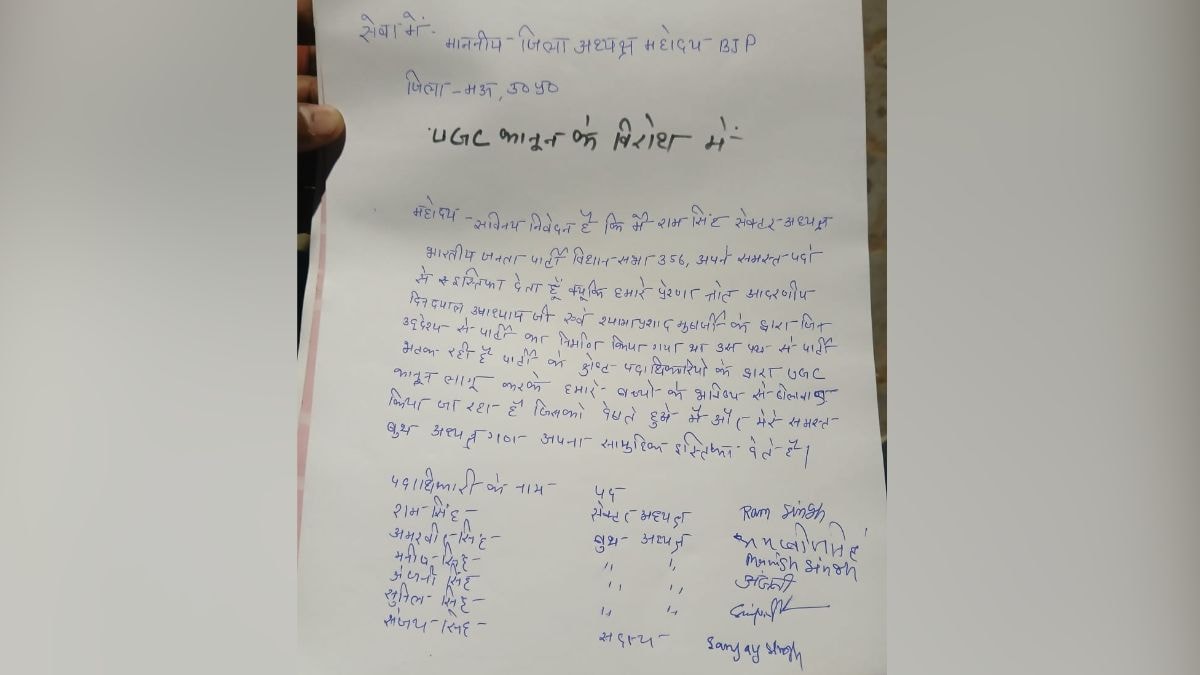 सेवा में.
माननीय - जिला अध्यक्ष महोदय - BJP
जिला - मऊ, उ०प्र०
UGC कानून के विरोध में
महोदय - सविनय निवेदन है कि मैं राम सिंह सेक्टर-अध्यक्ष
भारतीय जनता पार्टी विधान-सभा 356, अपने समस्त-पदो
से इस्तिफा देता हूँ क्यूकि हमारे प्रेरणा स्त्रोत आदरणीय
दिनदयाल उपाध्याय जी एवं श्यामाप्रशाद मुखर्जी के द्वारा जिस
उद्देश्य से पार्टी का निर्माण किया गया था उस पथ से पार्टी
भटक रही है पार्टी के पदाधिकारियो के द्वारा UGC
कानून लागू करके हमारे - बच्चो के भविष्य से
किया जा रहा है जिसको देखते हुये मैं और मेरे समस्त-
बुथ अध्यक्ष गण अपना सामुहिक इस्तिफा देते है।
पदाधिकारी के नाम - पद
राम-सिंह - सेक्टर अध्यक्ष Ram Singh
अमरजीत-सिंह - बुथ - अध्यक्ष
मनीष-सिंह - ,, ,, Manish Singh
अंजनी सिंह ,, ,, अंजनी
सुनिल-सिंह - ,, ,,
संजय-सिंह - सदस्य - Sanjay Singh